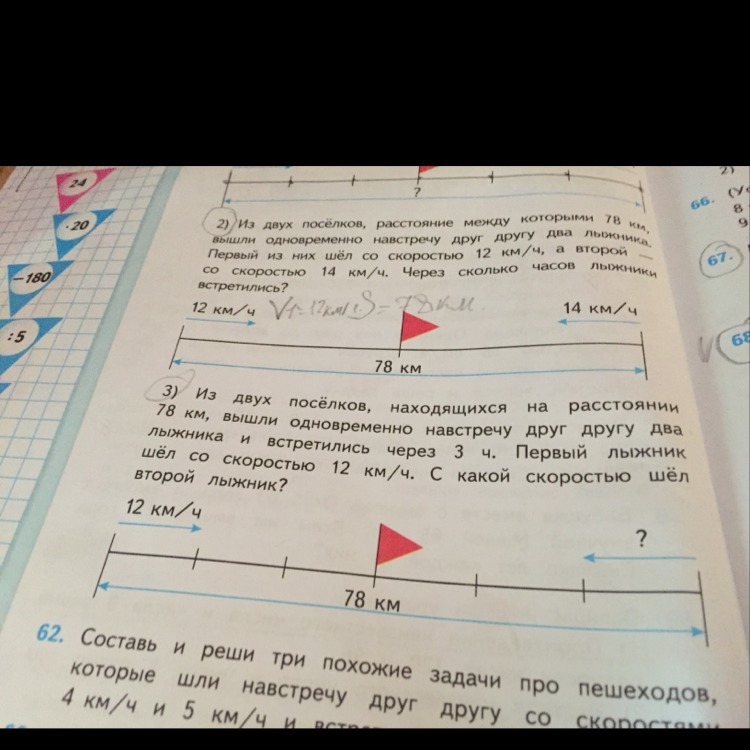 24
·20
−180
:5
?
2) Из двух посёлков, расстояние между которыми 78 км,
вышли одновременно навстречу друг другу два лыжника.
Первый из них шёл со скоростью 12 км/ч, а второй —
со скоростью 14 км/ч. Через сколько часов лыжники
встретились?
12 км/ч
V₁=12км/ч S=78км.
14 км/ч
78 км
3) Из двух посёлков, находящихся на расстоянии
78 км, вышли одновременно навстречу друг другу два
лыжника и встретились через 3 ч. Первый лыжник
шёл со скоростью 12 км/ч. С какой скоростью шёл
второй лыжник?
12 км/ч
?
78 км
62. Составь и реши три похожие задачи про пешеходов,
которые шли навстречу друг другу со скоростями
4 км/ч и 5 км/ч и
2)
66.
8
9
67.
68